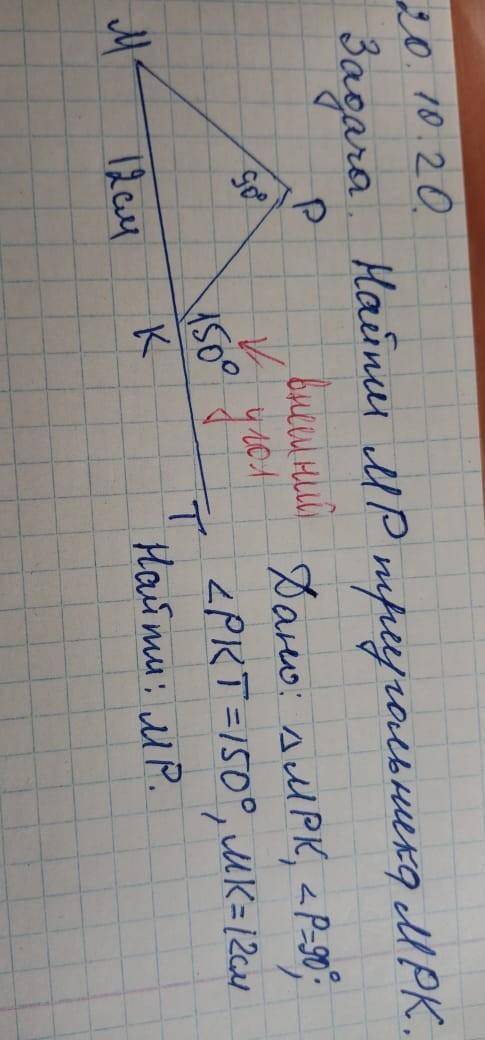 20.10.20.
Задача. Найти МР треугольника МРК.
М
Р
90°
12см
К
150°
Т
внешний
угол
Дано: △МРК, ∠Р=90°;
∠РКТ=150°, МК=12см
Найти: МР.